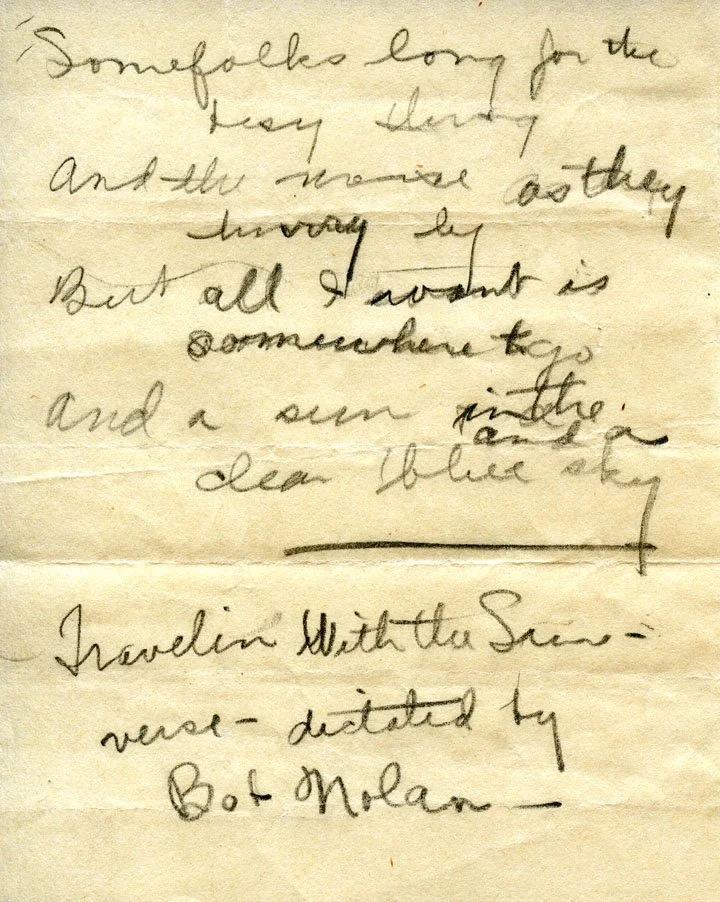 Somefolks long for the
busy throng
And the noise as they
hurry by
But all I want is
somewhere to go
And a sun in the
and a
clear blue sky
Travelin With the Sun -
verse - dictated by
Bob Nolan -